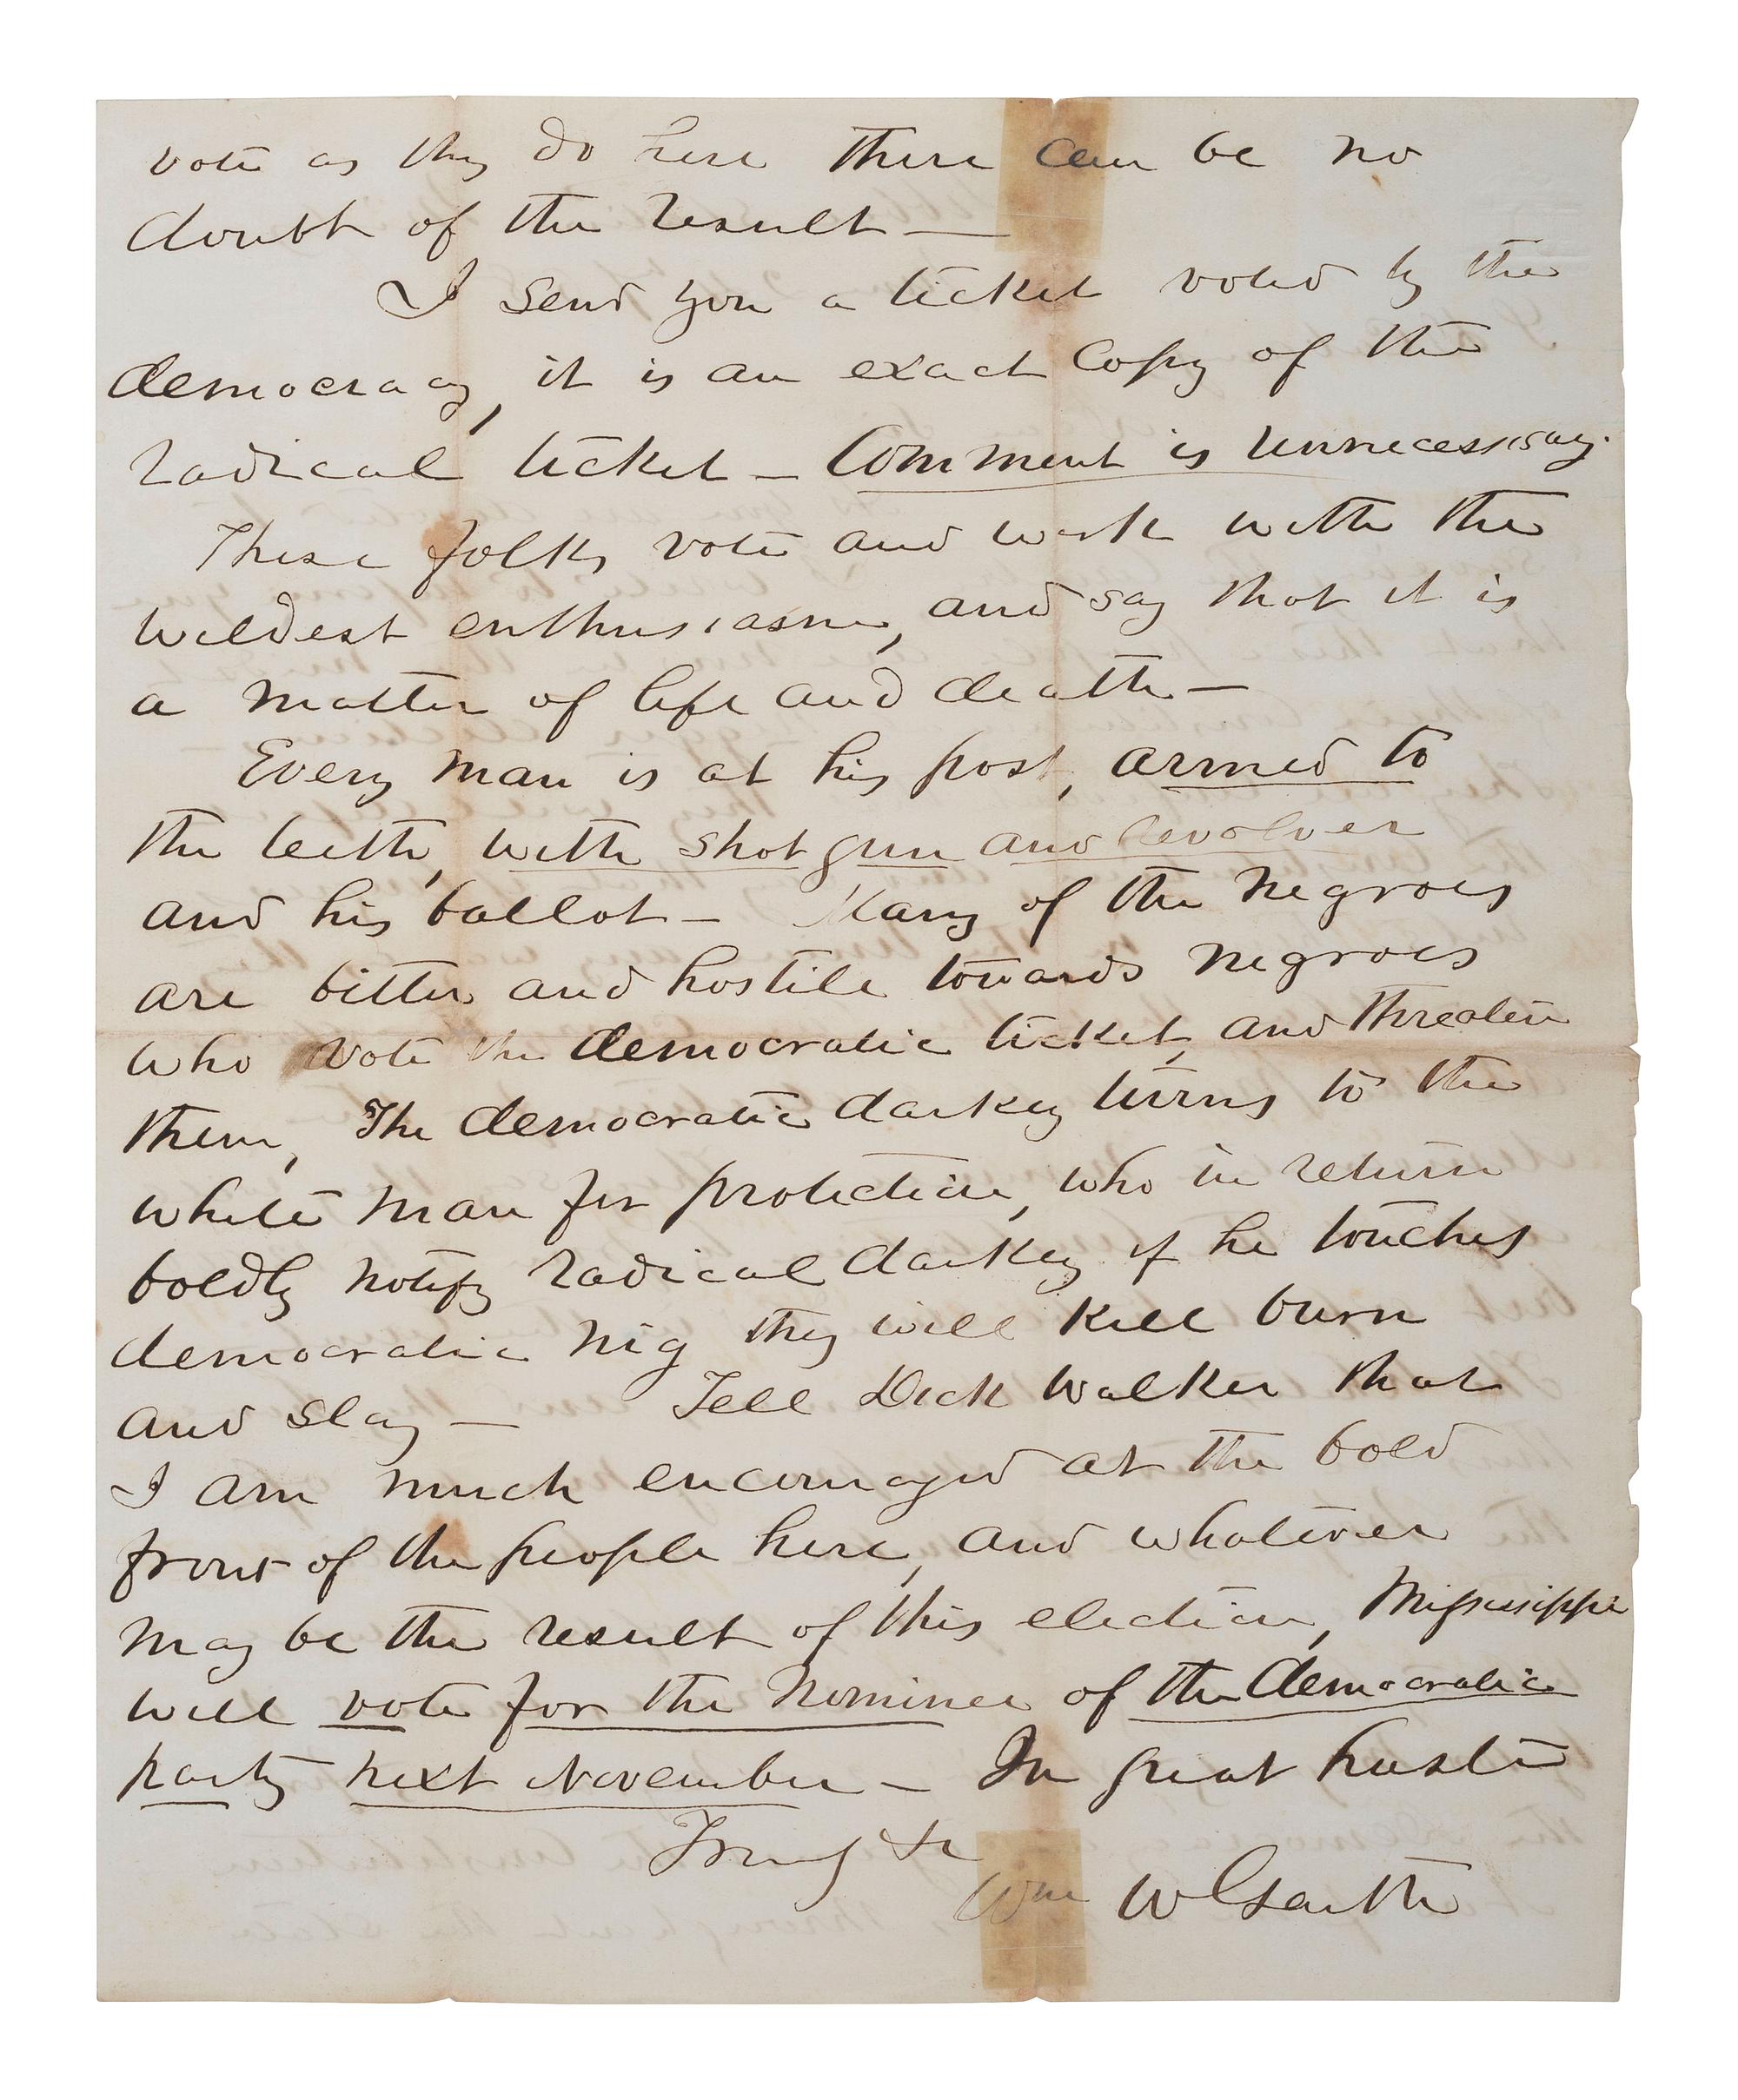 vote as they do here there can be no
doubt of the result —
I send you a ticket voted by the
democracy, it is an exact copy of the
radical ticket — Comment is unnecessary.
These folks vote and work with the
wildest enthusiasm, and say that it is
a matter of life and death —
Every man is at his post, armed to
the teeth, with shot gun and revolver
and his ballot — Many of the negroes
are bitter and hostile towards negroes
who vote the democratic ticket, and threaten
them, The democratic darkey turns to the
white man for protection, who in return
boldly notify radical darkey if he touches
democratic nig they will kill burn
and slay — Tell Dick Walker that
I am much encouraged at the bold
front of the people here, and whatever
may be the result of this election, Mississippi
will vote for the nominee of the democratic
party next November — In great haste
Truly &c
Wm W Garth